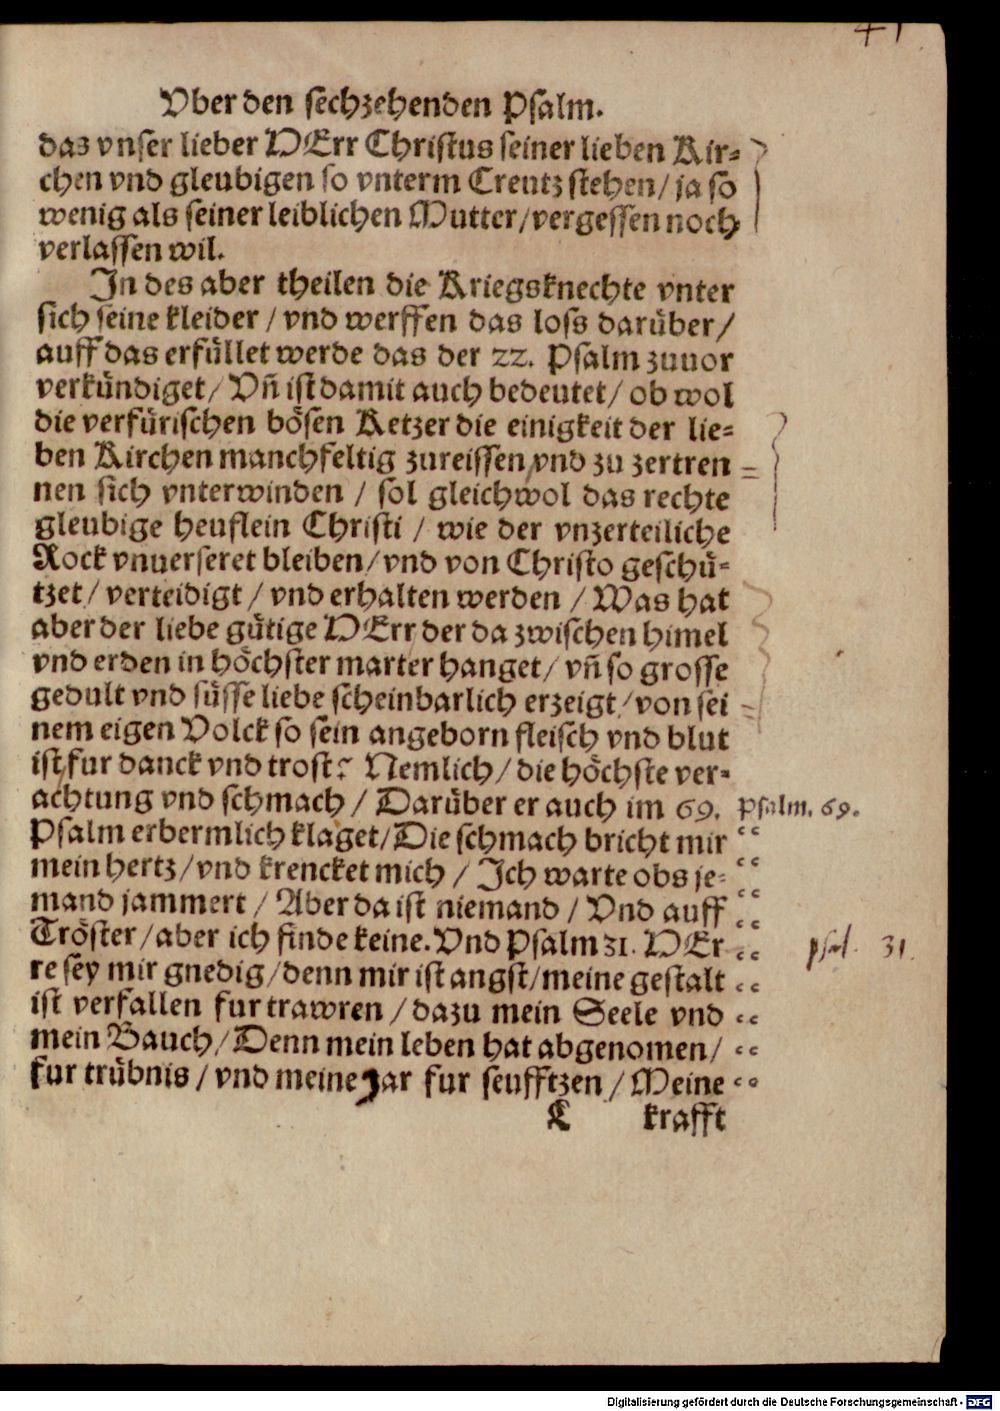 41
Vber den sechzehenden Psalm.
das vnser lieber HErr Christus seiner lieben Kir-
chen vnd gleubigen so vnterm Creutz stehen/ ja so
wenig als seiner leiblichen Mutter/vergessen noch
verlassen wil.
In des aber theilen die Kriegsknechte vnter
sich seine kleider / vnd werffen das loss darüber/
auff das erfüllet werde das der 22. Psalm zuuor
verkündiget/ Vñ ist damit auch bedeutet/ ob wol
die verfürischen bösen Ketzer die einigkeit der lie-
ben Kirchen manchfeltig zureissen vnd zu zertren
nen sich vnterwinden / sol gleichwol das rechte
gleubige heuflein Christi / wie der vnzerteiliche
Rock vnuerseret bleiben/vnd von Christo geschü-
tzet/ verteidigt / vnd erhalten werden / Was hat
aber der liebe gütige HErr der da zwischen himel
vnd erden in höchster marter hanget/ vñ so grosse
gedult vnd süsse liebe scheinbarlich erzeigt/von sei
nem eigen Volck so sein angeborn fleisch vnd blut
ist/fur danck vnd trost? Nemlich/ die höchste ver-
achtung vnd schmach / Darüber er auch im 69. Psalm. 69.
Psalm erbermlich klaget/Die schmach bricht mir
mein hertz/vnd krencket mich / Ich warte obs je-
mand jammert / Aber da ist niemand / Vnd auff
Tröster/aber ich finde keine.Vnd Psalm 31. HEr psal. 31.
re sey mir gnedig/denn mir ist angst/meine gestalt
ist verfallen fur trawren / dazu mein Seele vnd
mein Bauch/Denn mein leben hat abgenomen/
fur trübnis / vnd meine Jar fur seufftzen / Meine
L krafft
Digitalisierung gefördert durch die Deutsche Forschungsgemeinschaft - DFG